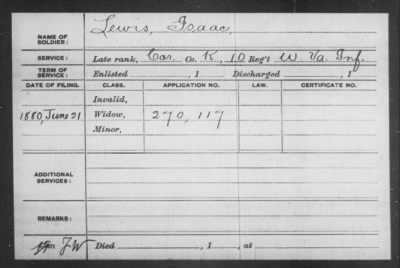 NAME OF SOLDIER: Lewis, Isaac,
SERVICE: Late rank, Cor. Co. K, 10 Reg't W. Va. Inf.
TERM OF SERVICE: Enlisted , 1 Discharged , 1
DATE OF FILING. CLASS. APPLICATION NO. LAW. CERTIFICATE NO.
Invalid,
1880, June 21 Widow, 270,117
Minor,
ADDITIONAL SERVICES:
REMARKS:
Died , 1 , at